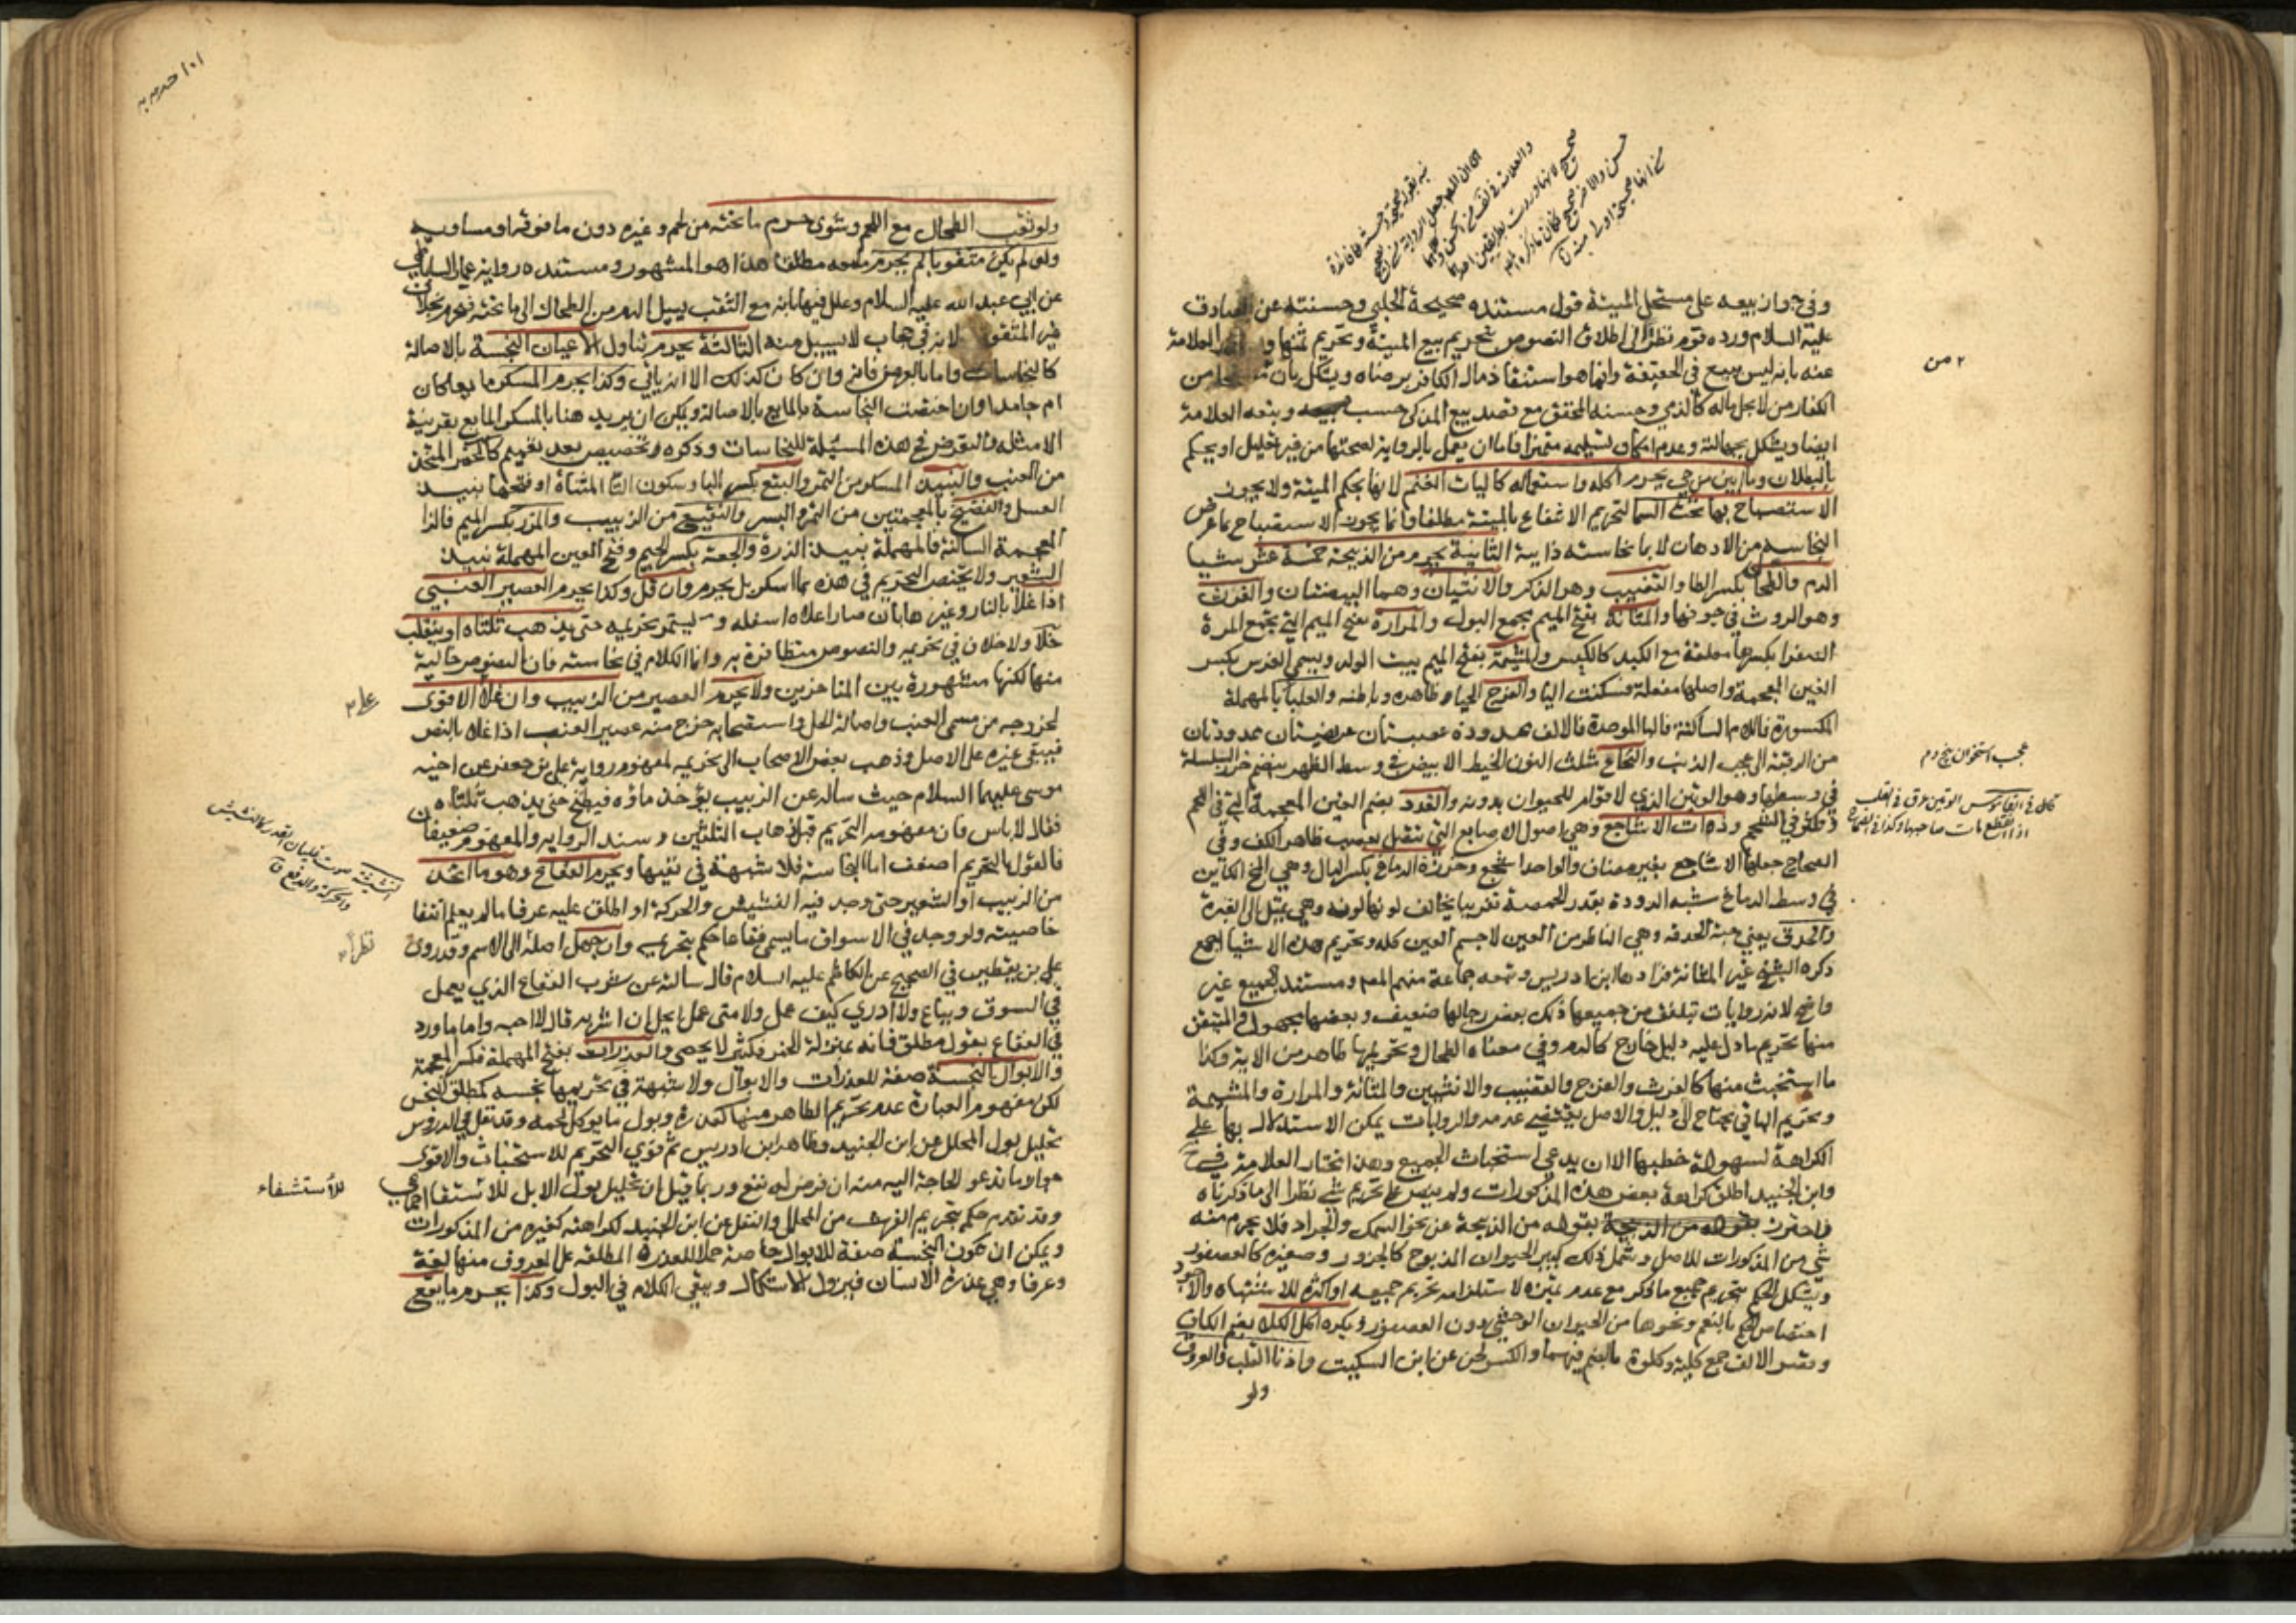 وفي جواز بيعه على مستحل الميتة قول مستنده صحيحة الحلبي وحسنته عن الصادق
عليه السلام ورده قوم نظرا الى اطلاق النصوص بتحريم بيع الميتة وتحريم ثمنها و العلامة
عنه بانه ليس ببيع في الحقيقة وانما هو استنقاذ مال الكافر برضاه ويشكل بان من
الكفار من لا يحل ماله كالذمي وحسنه المحقق مع قصد بيع المذكى حسب وتبعه العلامة
ايضا ويشكل بجهالته وعدم امكان تسليمه متميزا فاما ان يعمل بالرواية لصحتها من غير تعليل او يحكم
بالبطلان وما ابين من حي يحرم اكله واستعماله كاليات الغنم لانها بحكم الميتة ولا يجوز
الاستصباح بها تحت السما لتحريم الانتفاع بالميتة مطلقا وانما يجوز الاستصباح بما عرض
النجاسه من الادهان لا بما نجاسته ذاتية الثانية يحرم من الذبيحة خمسة عشر شيا
الدم والطحال بكسر الطا والقضيب وهو الذكر والانثيان وهما البيضتان والفرث
وهو الروث في جوفها والمثانة بفتح الميم مجمع البول والمرارة بفتح الميم التي تجمع المرة
الصفرا بكسرها معلقة مع الكبد كالكيس والمشيمة بفتح الميم بيت الولد ويسمى الغرس بكسر
الغين المعجمة واصلها مفعلة فسكنت اليا والفرج الحياء ظاهره وباطنه والعلبا بالمهملة
المكسورة فاللام الساكنة فالبا الموحدة فالالف ممدودة عصبتان عريضتان ممدودتان
من الرقبة الى عجب الذنب والنخاع مثلث النون الخيط الابيض في وسط الظهر ينضم خرز السلسلة
في وسطها وهو الوتين الذي لا قوام للحيوان بدونه والغدد بضم الغين المعجمة التي في اللحم
وتكثر في الشحم وذوات الاشاجع وهي اصول الاصابع التي يتصل بعصب ظاهر الكف وفي
الصحاح جعلها الاشاجع بغير مضاف والواحد اشجع وخرزة الدماغ بكسر الدال وهي المخ الكائن
في وسط الدماغ شبه الدودة بقدر الحمصة تقريبا يخالف لونها لونه وهي تميل الى الغبرة
والحدق يعني حبة الحدقه وهي الناظر من العين لا جسم العين كله وتحريم هذه الاشيا اجمع
ذكره الشيخ غير المثانة فزادها ابن ادريس وتبعه جماعة منهم المصـ ومستند الجميع غير
واضح لانه روايات يتلفق من جميعها ذلك بعض رجالها ضعيف وبعضها مجهول والمتيقن
منها تحريم ما دل عليه دليل خارج كالدم وفي معناه الطحال وتحريمها ظاهر من الاية وكذا
ما استخبث منها كالفرث والفرج والقضيب والانثيين والمثانة والمرارة والمشيمة
وتحريم الباقي يحتاج الى دليل والاصل يقتضي عدمه والروايات يمكن الاستدلال بها على
الكراهة لسهولة خطبها الا ان يدعي استخباث الجميع وهذا اختار العلامة في
وابن الجنيد اطلق كراهة بعض هذه المذكورات ولم ينص على تحريم شي نظرا الى ما ذكرناه
واحترز بقوله من الذبيحة عن نحو السمك والجراد فلا يحرم منه
شي من المذكورات للاصل وشمل ذلك كبير الحيوان المذبوح كالجزور وصغيره كالعصفور
ويشكل الحكم بتحريم جميع ما ذكر مع عدم تميزه لاستلزامه تحريم جميعه او اكثره للاشتباه والاجود
اختصاص الحكم بالنعم ونحوها من الحيوان الوحشي دون العصفور ويكره اكل الكلا بضم الكاف
وقصر الالف جمع كلية وكلوة بالضم فيهما والكسر لحن عن ابن السكيت واذنا القلب والعروق
ولو
عجب استخوان بيخ دم
قال في القاموس الوتين عرق في القلب
اذا انقطع مات صاحبه وكذا في الصحاح
ولو ثقب الطحال مع اللحم وشوى حرم ما تحته من لحم وغيره دون ما فوقه او مساويه
ولو لم يكن مثقوبا لم يحرم ما معه مطلقا هذا هو المشهور ومستنده رواية عمار الساباطي
عن ابي عبد الله عليه السلام وعلل فيها بانه مع الثقب يسيل الدم من الطحال الى ما تحته فيحرم بخلاف
غير المثقوب لانه في حجاب لا يسيل منه الثالثة يحرم تناول الاعيان النجسة بالاصالة
كالنجاسات واما بالعرض فانه وان كان كذلك الا انه ياتي وكذا يحرم المسكر مايعا كان
ام جامدا وان اختصت النجاسة بالمايع بالاصالة ويمكن ان يريد هنا بالمسكر المايع بقرينة
الامثلة والتعرض في هذه المسئلة للنجاسات وذكره تخصيص بعد تعميم كالخمر المتخذ
من العنب والنبيذ المسكر من التمر والبتع بكسر البا وسكون التا المثناة او فتحها نبيذ
العسل والفضيخ بالمعجمتين من التمر والبسر والنقيع من الزبيب والمزر بكسر الميم فالزا
المعجمة الساكنة فالمهملة نبيذ الذرة والجعة بكسر الجيم وفتح العين المهملة نبيذ
الشعير ولا يختص التحريم في هذه بما اسكر بل يحرم وان قل وكذا يحرم العصير العنبي
اذا غلا بالنار وغيرها بان صار اعلاه اسفله و يستمر تحريمه حتى يذهب ثلثاه او ينقلب
خلا ولا خلاف في تحريمه والنصوص متظافرة به وانما الكلام في نجاسته فان النصوص خالية
منها لكنها مشهورة بين المتاخرين ولا يحرم العصير من الزبيب وان غلا الاقوى
لخروجه من مسمى العنب واصالة الحل واستصحابه خرج منه عصير العنب اذا غلا بالنص
فيبقى غيره على الاصل وذهب بعض الاصحاب الى تحريمه لمفهوم رواية علي بن جعفر عن اخيه
موسى عليهما السلام حيث ساله عن الزبيب يؤخذ ماؤه فيطبخ حتى يذهب ثلثاه
فقال لا باس فان مفهومه التحريم قبل ذهاب الثلثين وسند الرواية والمفهوم ضعيفان
فالقول بالتحريم اضعف اما النجاسة فلا شبهة في نفيها ويحرم الفقاع وهو ما اتخذ
من الزبيب او الشعير حتى وجد فيه النشيش والحركة او اطلق عليه عرفا ما لم يعلم انتفا
خاصيته ولو وجد في الاسواق ما يسمى فقاعا حكم بتحريمه وان جهل اصله الى الاسم وقد روى
علي بن يقطين في الصحيح عن الكاظم عليه السلام قال سالته عن شرب الفقاع الذي يعمل
في السوق ويباع ولا ادري كيف عمل ولا متى عمل ايحل ان اشربه قال لا احبه واما ما ورد
في الفقاع بقول مطلق فانه بمنزلة الخمر فكثير لا يحصى والعذرات بفتح المهملة فكسر المعجمة
والابوال النجسة صفة للعذرات والابوال ولا شبهة في تحريمها نجسه كمطلق النجس
لكن مفهوم العبارة عدم تحريم الطاهر منها كعذرة وبول ما يوكل لحمه وقد نقل في الدروس
تحليل بول المحلل عن ابن الجنيد وظاهر ابن ادريس ثم قوى التحريم للاستخباث والاقوى
جواز ما تدعو الحاجة اليه منه ان فرض له نفع وربما قيل ان تحليل بول الابل للاستشفا اجماعي
وقد تقدم حكمه بتحريم الفرث من المحلل والنقل عن ابن الجنيد لكراهته كغيره من المذكورات
ويمكن ان تكون النجسة صفة للابوال خاصة حملا للعذرة المطلقة على المعروف منها لغة
وعرفا وهي عذرة الانسان فيزول الاشكال ويبقى الكلام في البول وكذا يحرم ما يقع
نظرا
للأستشفاء